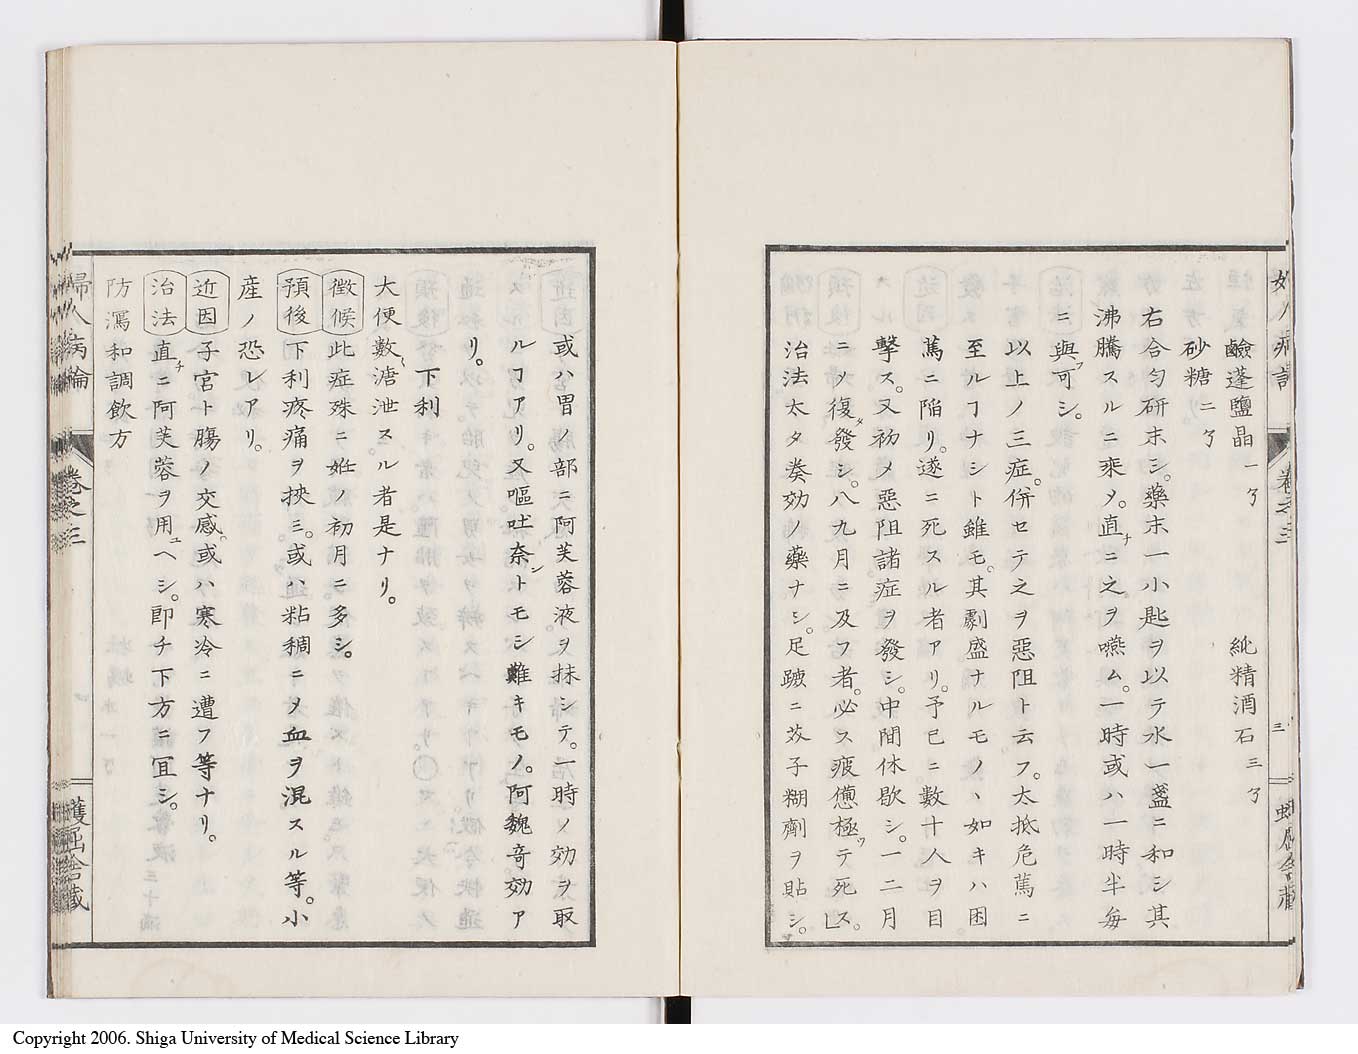 鹼蓬鹽晶 一 純精酒石 三
砂糖 二
右合匀研末シ。藥末一小匙ヲ以テ水一盞ニ和シ其
沸騰スルニ乘メ。直チニ之ヲ嚥ム。一時或ハ一時半每
ニ與フ可シ。
以上ノ三症。併セテ之ヲ惡阻ト云フ。大抵危篤ニ
至ルヿナシト雖モ。其劇盛ナルモノヽ如キハ困
篤ニ陥リ。遂ニ死スル者アリ。予已ニ數十人ヲ目
擊ス。又初メ惡阻諸症ヲ發シ。中間休歇シ。一二月
ニノ復タ發シ。八九月ニ及フ者。必ス疲憊極ツテ死ス。
治法太タ奏効ノ藥ナシ。足跛ニ芥子糊劑ヲ貼シ。
或ハ胃ノ部ニ阿芙蓉液ヲ抹シテ。一時ノ効ヲ取
ルヿアリ。又嘔吐奈ントモシ難キモノ。阿魏奇効ア
リ。
下利
大便數〻溏泄スル者是ナリ。
徴候 此症殊ニ姙ノ初月ニ多シ。
預後 下利疼痛ヲ挾ミ。或ハ粘稠ニノ血ヲ混スル等。小
産ノ恐レアリ。
近因 子宮ト膓ノ交感。或ハ寒冷ニ遭フ等ナリ。
治法 直チニ阿芙蓉ヲ用ユヘシ。即チ下方ニ宜シ。
防瀉和調飲方
婦人病論 卷之三 蠖屈舍藏
Copyright 2006. Shiga University of Medical Science Library